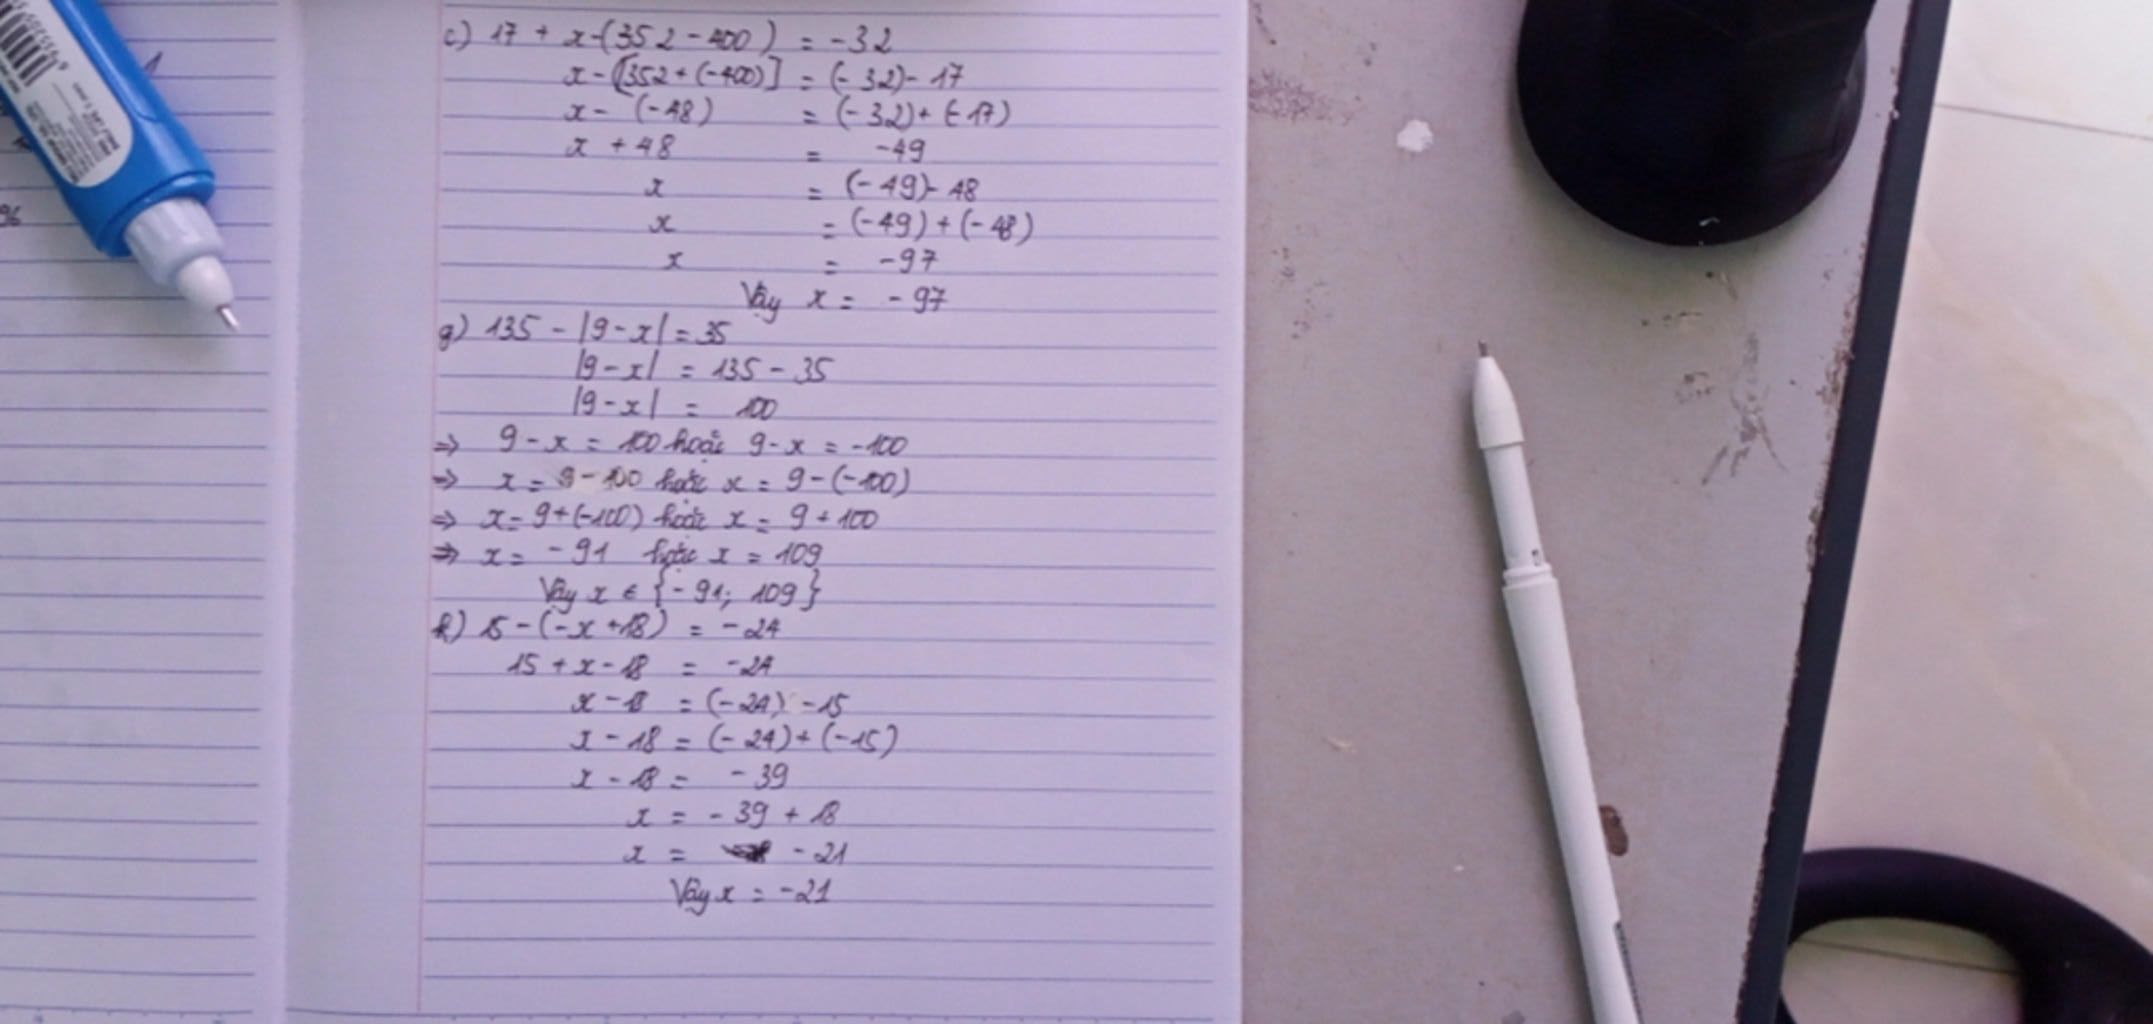 c) 17 + x-(352-400) = -32
x-[352+(-400)] = (-32)-17
x- (-48) = (-32)+(-17)
x + 48 = -49
x = (-49)-48
x = (-49)+(-48)
x = -97
Vậy x = -97
g) 135 - |9-x| = 35
|9-x| = 135-35
|9-x| = 100
=> 9-x = 100 hoặc 9-x = -100
=> x = 9-100 hoặc x = 9-(-100)
=> x = 9+(-100) hoặc x = 9+100
=> x = -91 hoặc x = 109
Vậy x ∈ {-91; 109}
h) 15-(-x+18) = -24
15+x-18 = -24
x-18 = (-24) -15
x-18 = (-24)+(-15)
x-18 = -39
x = -39+18
x = -21
Vậy x = -21
96